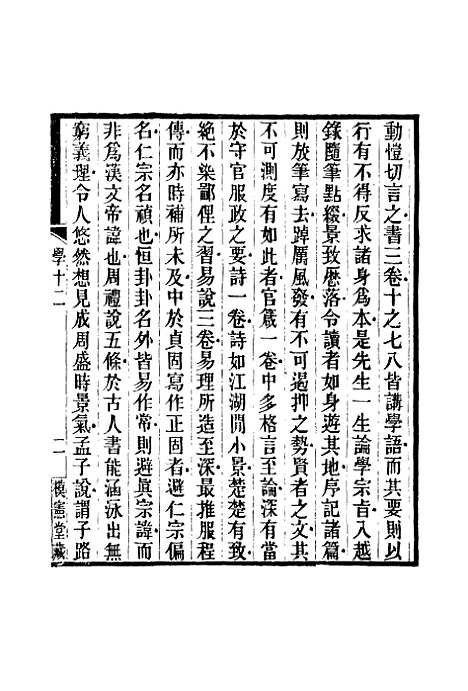 動愷切言之書三卷十之七八皆講學語而其要則以
行有不得反求諸身為本是先生一生論學宗旨入越
錄隨筆點綴景致歷落令讀者如身遊其地序記諸篇
則放筆寫去踔厲風發有不可遏抑之勢賢者之文其
不可測度有如此者官箴一卷中多格言至論深有當
於守官服政之要詩一卷詩如江湖閒小景楚楚有致
絕不染鄙俚之習易說三卷易理所造至深最推服程
傳而亦時補所未及中於貞固寫作正固者避仁宗偏
名仁宗名禎也恒卦卦名外皆易作常則避真宗諱而
非為漢文帝諱也周禮說五條於古人書能涵泳出無
窮義理令人悠然想見成周盛時景氣孟子說謂子路
學十二
二
樸憲堂藏